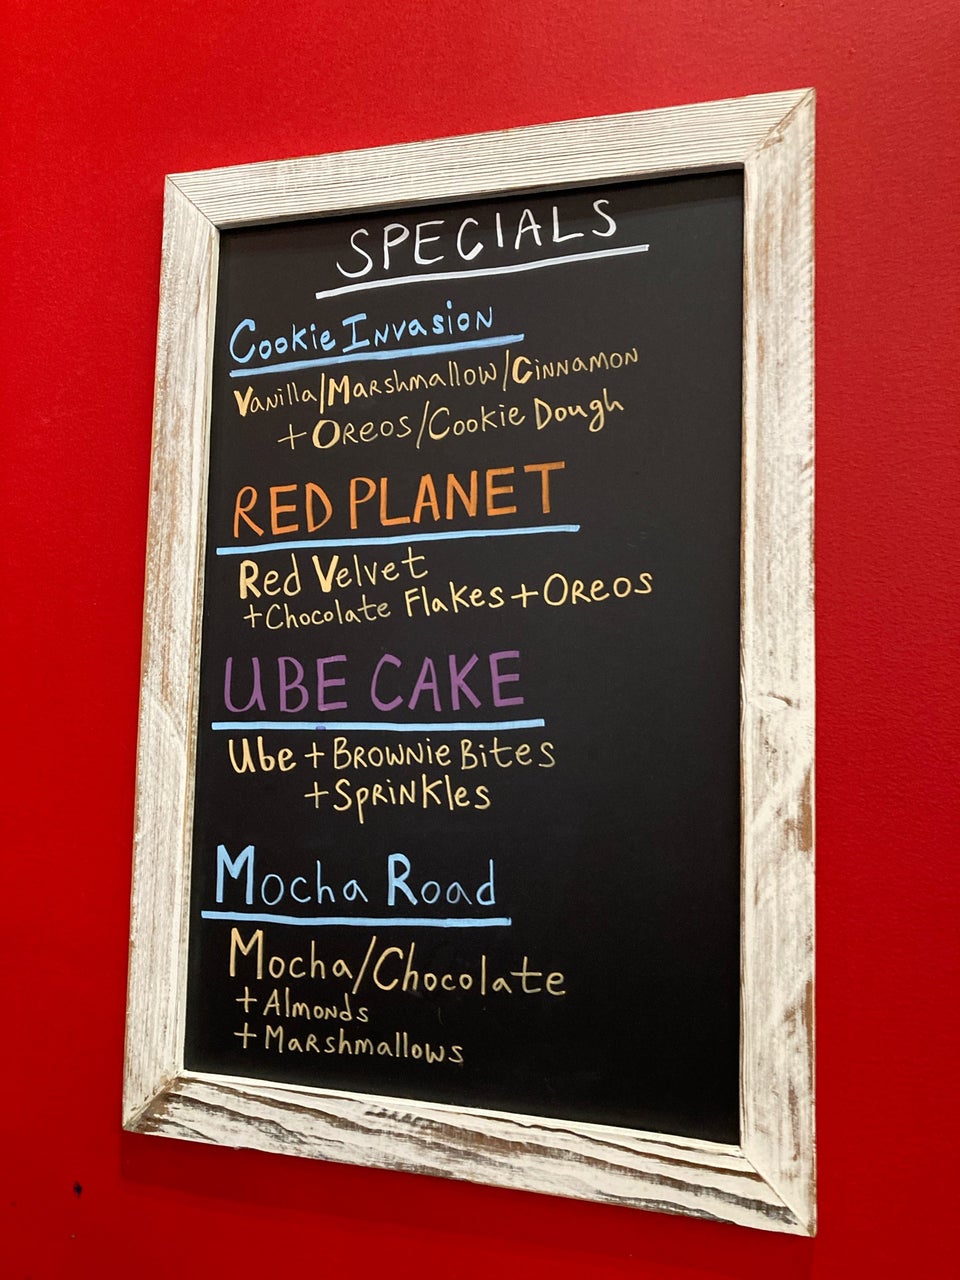 SPECIALS
Cookie Invasion
Vanilla/Marshmallow/Cinnamon
+ Oreos/Cookie Dough
RED PLANET
Red Velvet
+Chocolate Flakes + Oreos
UBE CAKE
Ube + Brownie Bites
+ Sprinkles
Mocha Road
Mocha/Chocolate
+ Almonds
+ Marshmallows